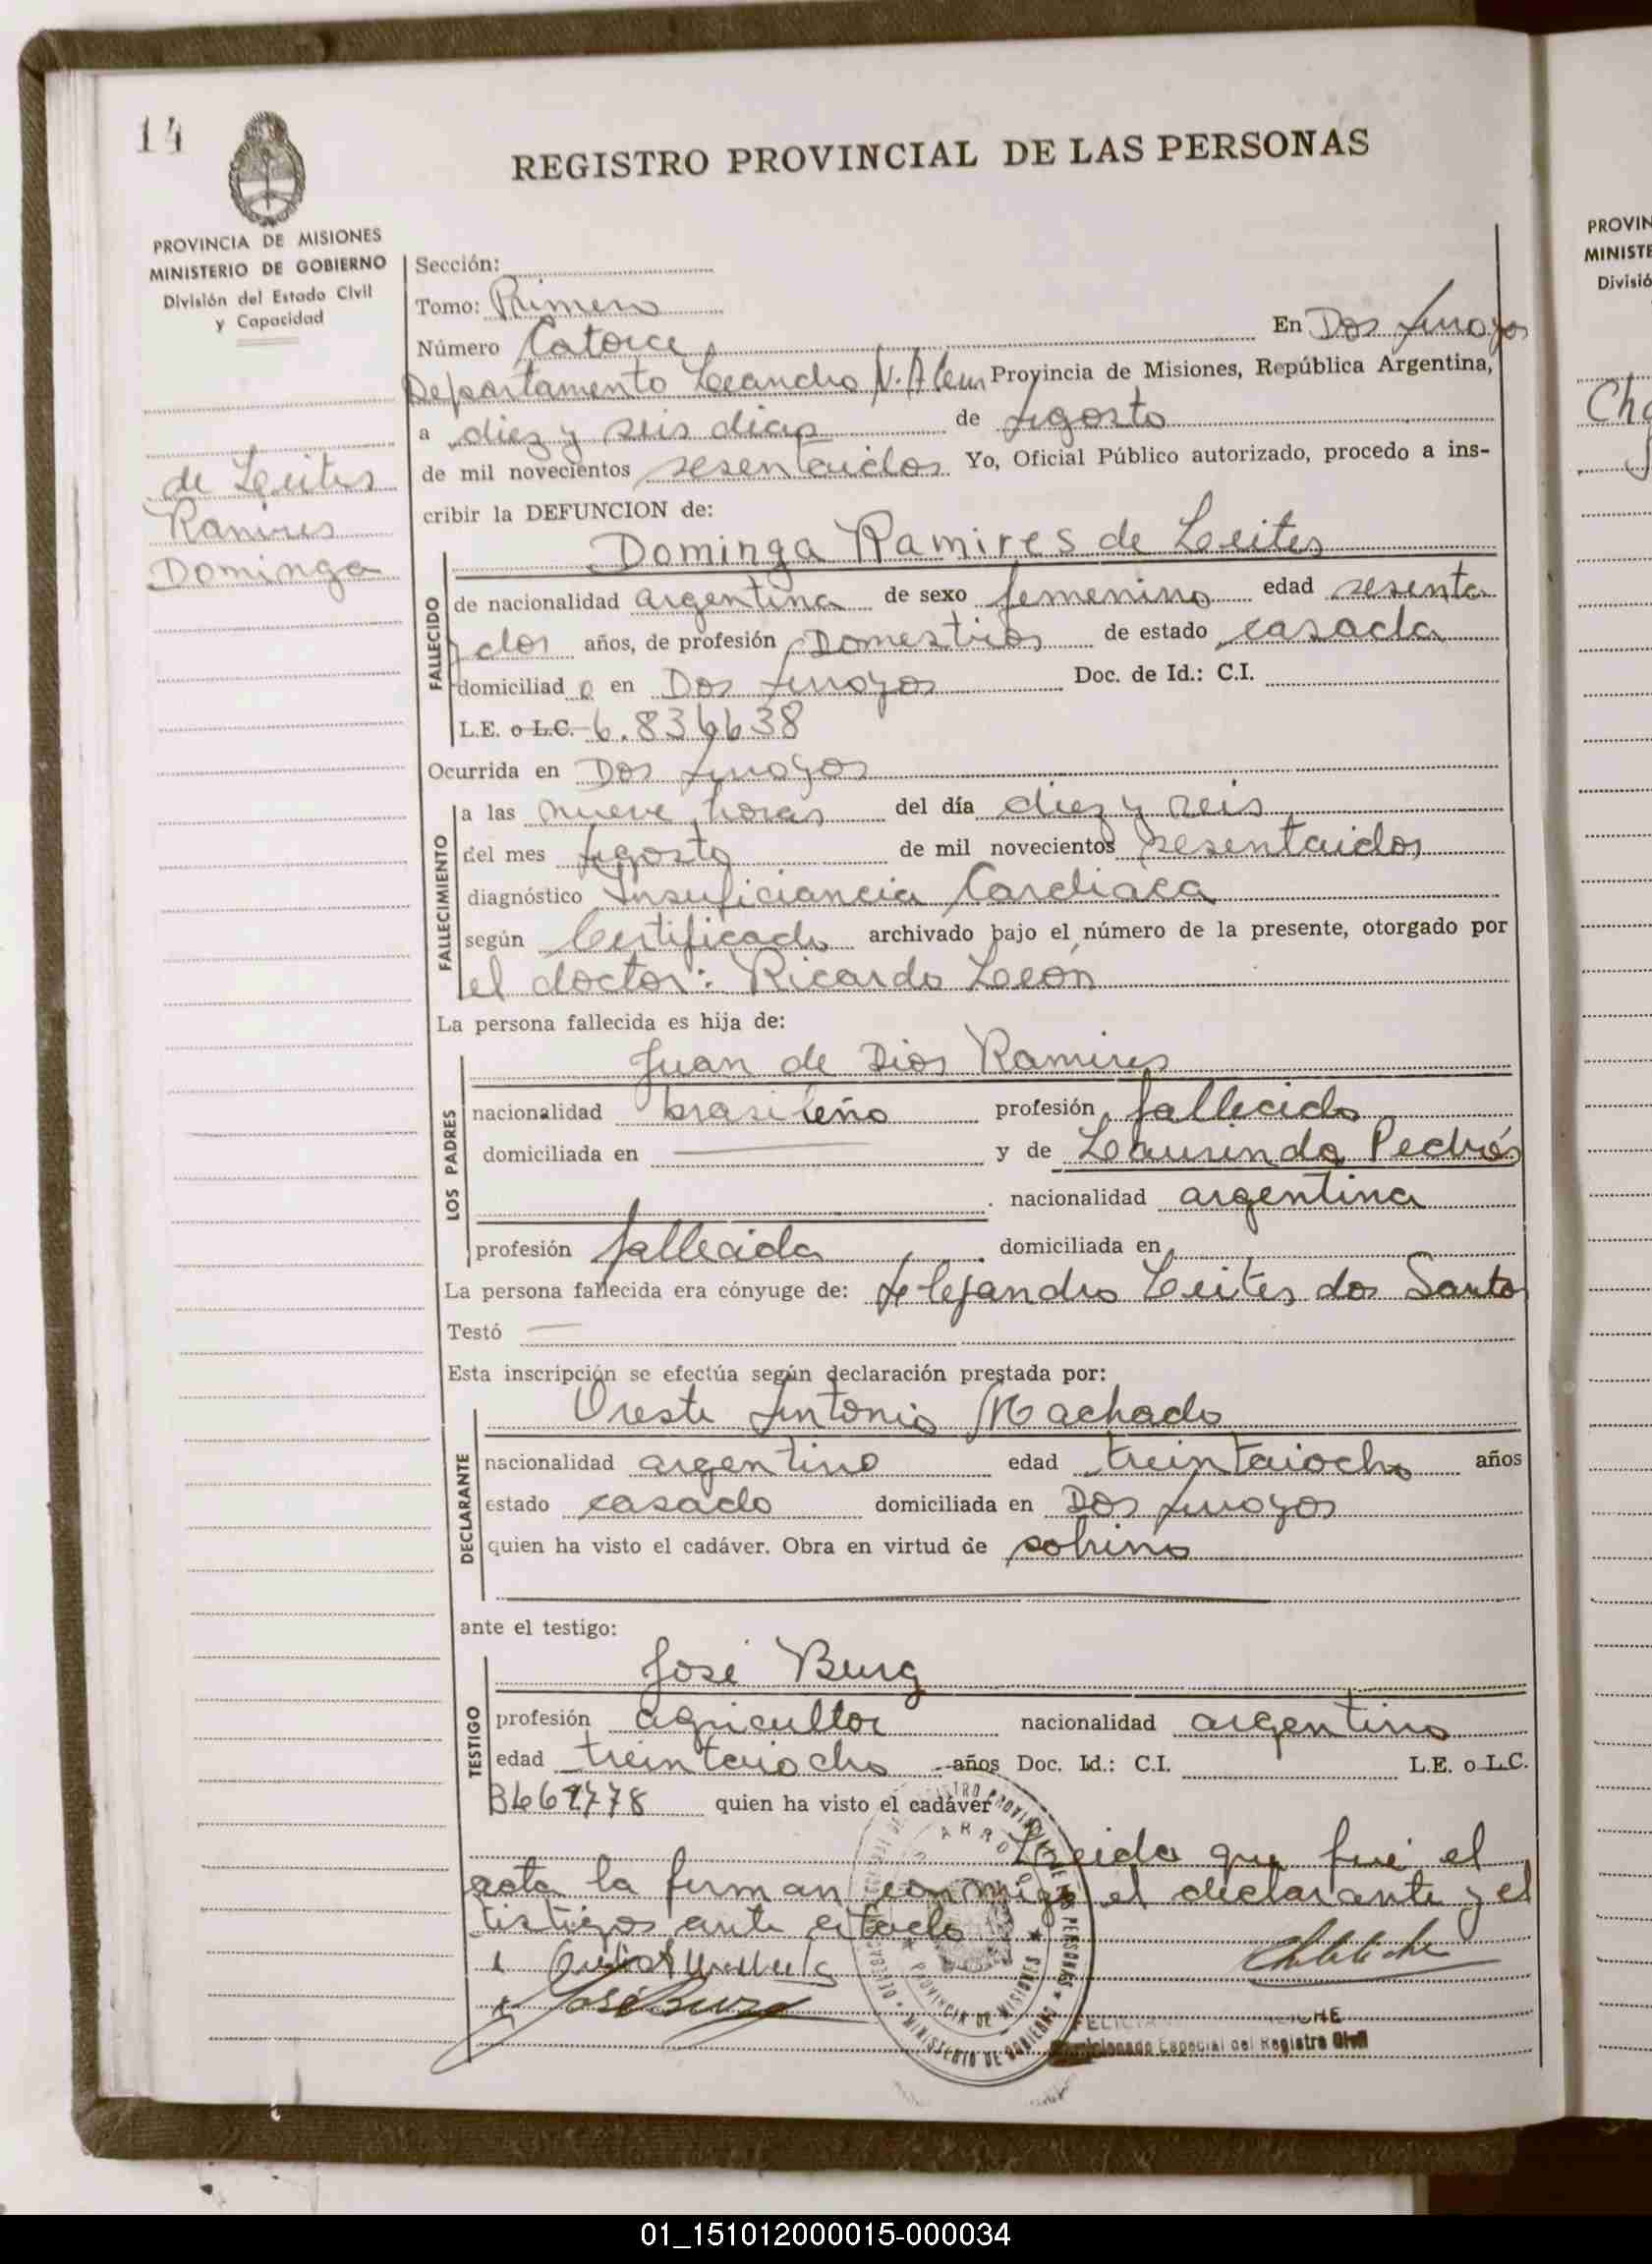 14
REGISTRO PROVINCIAL DE LAS PERSONAS
PROVINCIA DE MISIONES
MINISTERIO DE GOBIERNO
División del Estado Civil
y Capacidad
de Leites
Ramires
Dominga
Sección:
Tomo: Primero
Número Catorce En Dos Arroyos
Departamento Leandro N. Alem Provincia de Misiones, República Argentina,
a diez y seis dias de Agosto
de mil novecientos sesentaidos Yo, Oficial Público autorizado, procedo a ins-
cribir la DEFUNCION de:
Dominga Ramires de Leites
FALLECIDO
de nacionalidad argentina de sexo femenino edad sesenta
y dos años, de profesión Domesticos de estado casada
domiciliad a en Dos Arroyos Doc. de Id.: C.I.
L.E. o L.C. 6.836638
Ocurrida en Dos Arroyos
FALLECIMIENTO
a las nueve horas del día diez y seis
del mes Agosto de mil novecientos sesentaidos
diagnóstico Insuficiancia Cardiaca
según Certificado archivado bajo el número de la presente, otorgado por
el doctor: Ricardo León
La persona fallecida es hija de:
LOS PADRES
Juan de Dios Ramires
nacionalidad brasileño profesión fallecido
domiciliada en y de Laurinda Pedrós
nacionalidad argentina
profesión fallecida domiciliada en
La persona fallecida era cónyuge de: Alejandro Leites dos Santos
Testó
Esta inscripción se efectúa según declaración prestada por:
DECLARANTE
Oreste Antonio Machado
nacionalidad argentino edad treintaiocho años
estado casado domiciliada en Dos Arroyos
quien ha visto el cadáver. Obra en virtud de sobrino
ante el testigo:
TESTIGO
José Burg
profesión agricultor nacionalidad argentino
edad treintaiocho años Doc. Id.: C.I. L.E. o L.C.
quien ha visto el cadáver
Leida que fué el
acta la firman conmigo el declarante y el
testigos ante citado
José Burg
Comisionado Especial del Registro Civil
PROVIN
MINISTE
Divisió
01_151012000015-000034